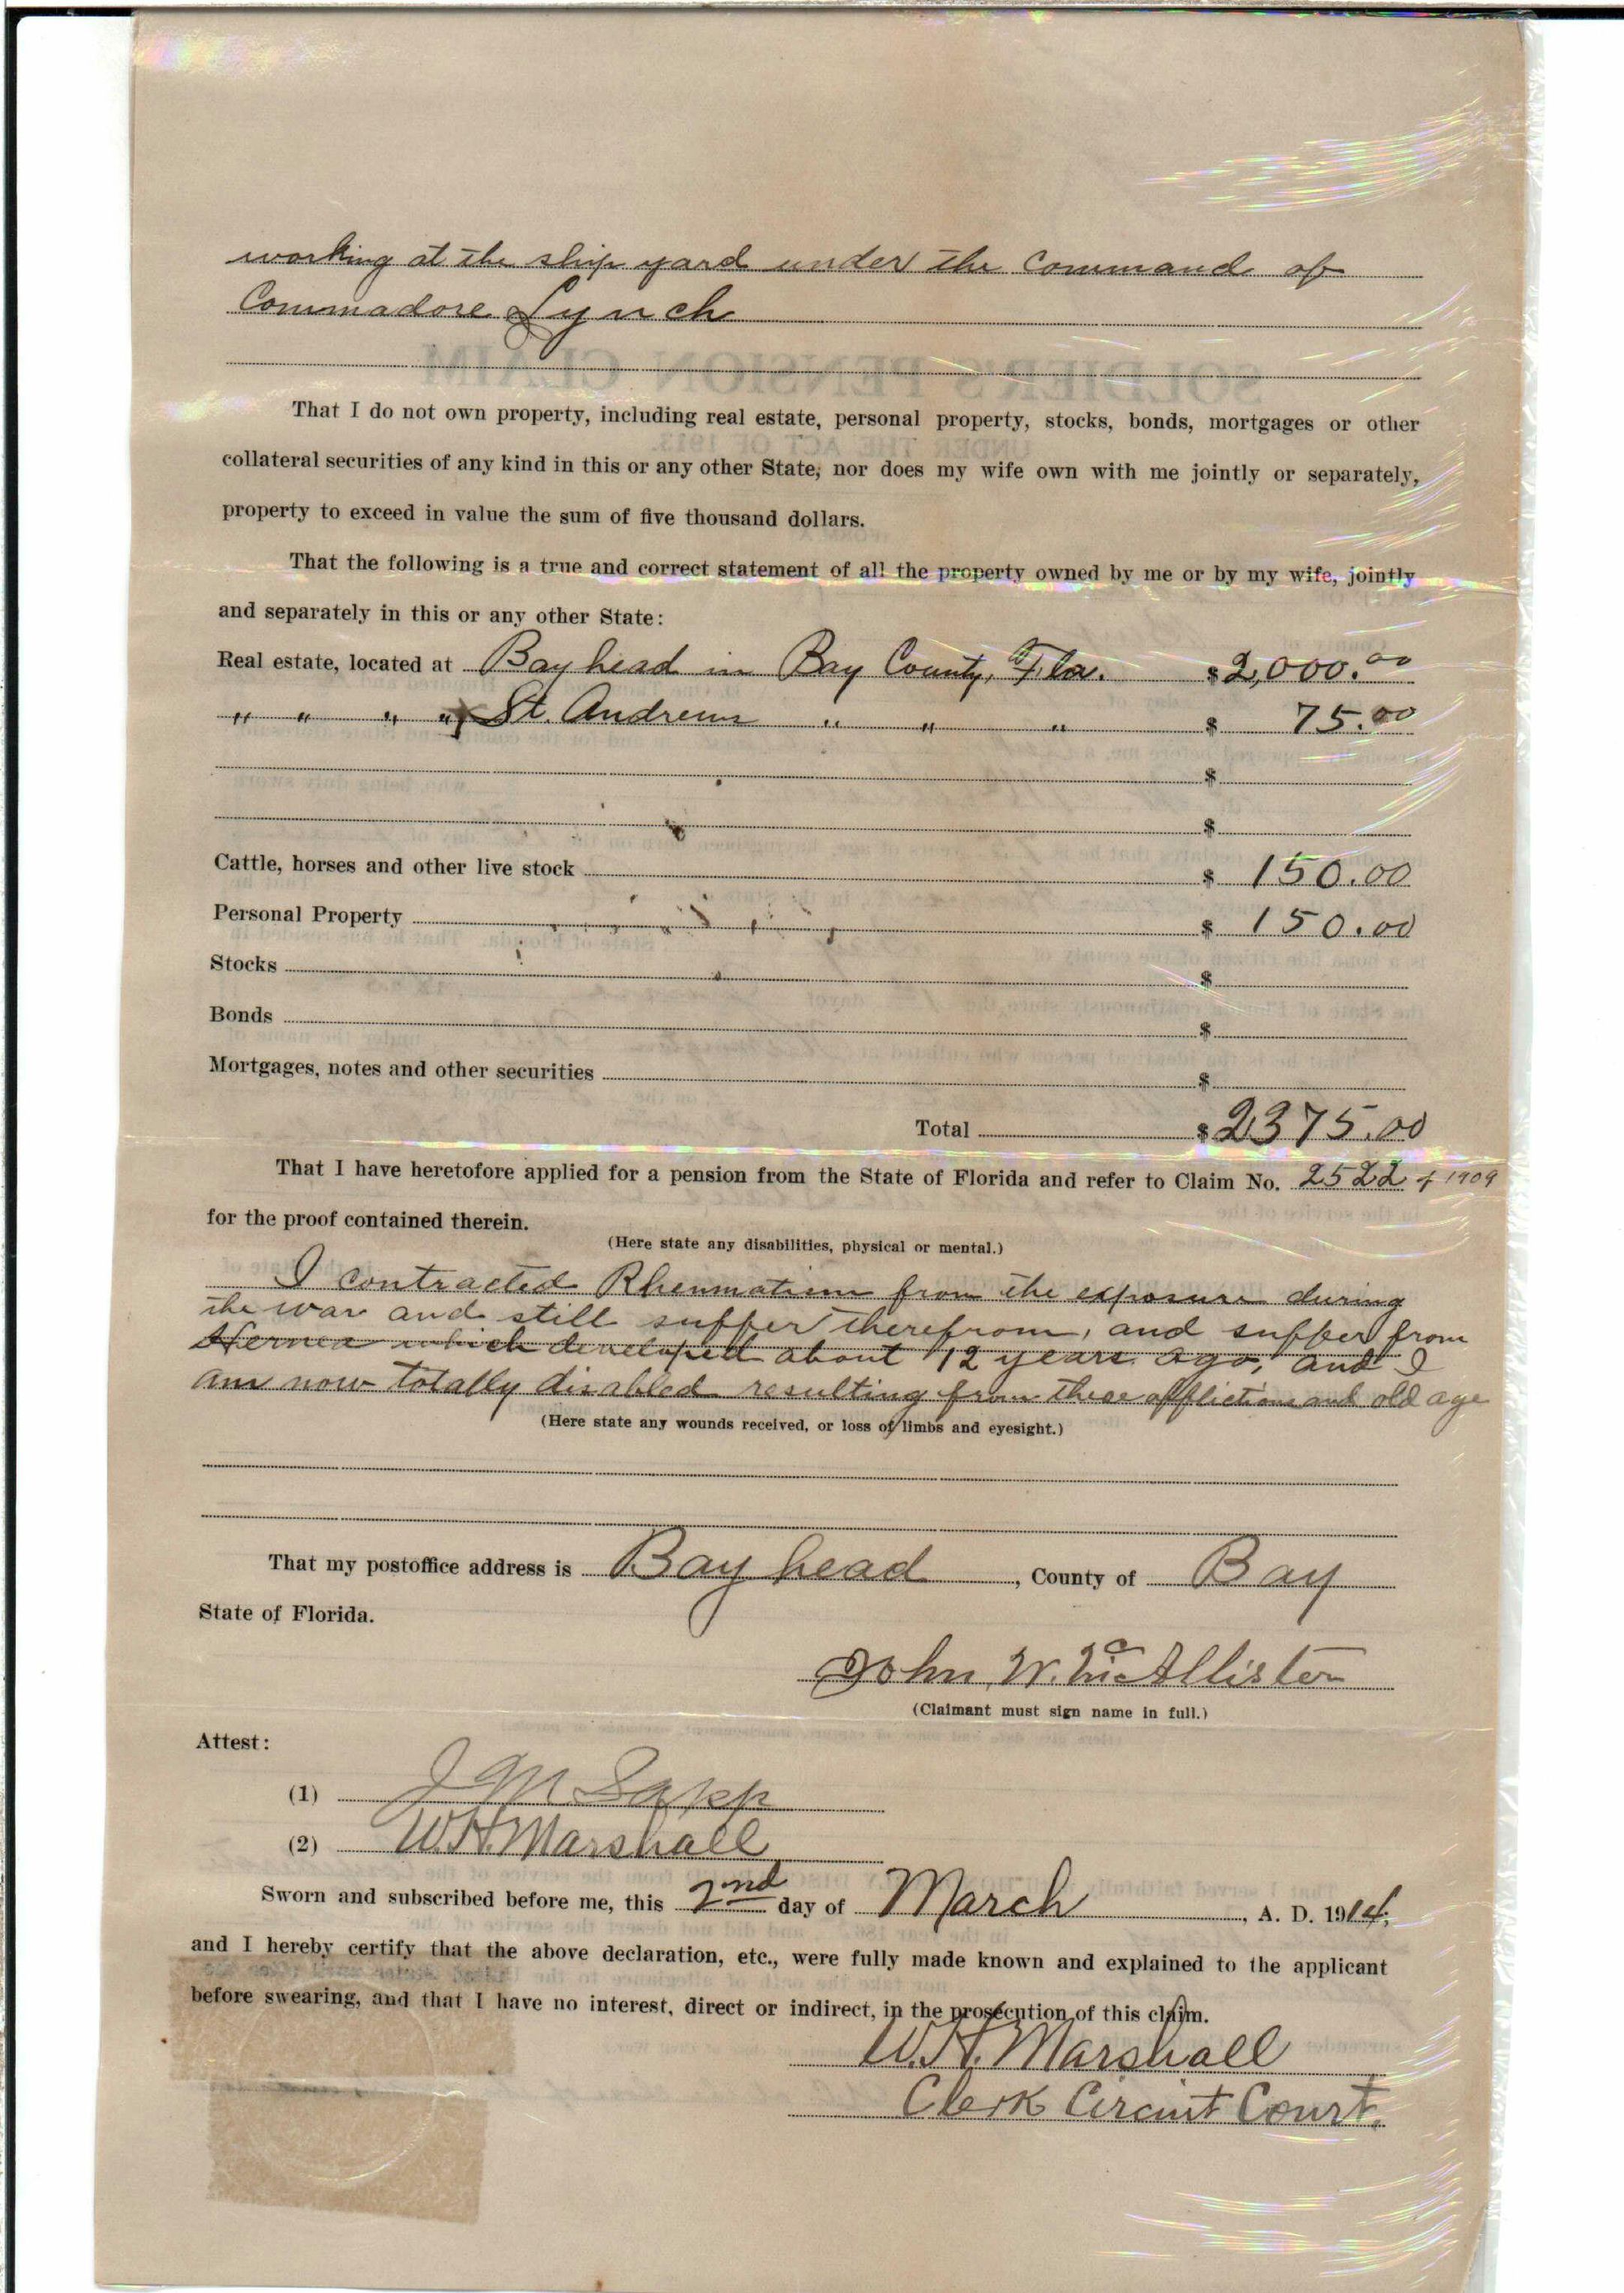 working at the ship yard under the command of
Commadore Lynch
That I do not own property, including real estate, personal property, stocks, bonds, mortgages or other
collateral securities of any kind in this or any other State, nor does my wife own with me jointly or separately,
property to exceed in value the sum of five thousand dollars.
That the following is a true and correct statement of all the property owned by me or by my wife, jointly
and separately in this or any other State:
Real estate, located at Bay head in Bay County, Fla. $2,000.00
" " " " St. Andrews " " " $ 75.00
$
$
Cattle, horses and other live stock $ 150.00
Personal Property $ 150.00
Stocks $
Bonds $
Mortgages, notes and other securities $
Total $2375.00
That I have heretofore applied for a pension from the State of Florida and refer to Claim No. 2522 of 1909
for the proof contained therein.
(Here state any disabilities, physical or mental.)
I contracted Rheumatism from the exposure during
the war and still suffer therefrom, and suffer from
Hernea which developed about 12 years ago, and I
am now totally disabled resulting from these afflictions and old age
(Here state any wounds received, or loss of limbs and eyesight.)
That my postoffice address is Bay head, County of Bay
State of Florida.
John W. McAllister
(Claimant must sign name in full.)
Attest:
(1) J M Sapp
(2) W.H. Marshall
Sworn and subscribed before me, this 2nd day of March, A. D. 1914,
and I hereby certify that the above declaration, etc., were fully made known and explained to the applicant
before swearing, and that I have no interest, direct or indirect, in the prosecution of this claim.
W.H. Marshall
Clerk Circuit Court.